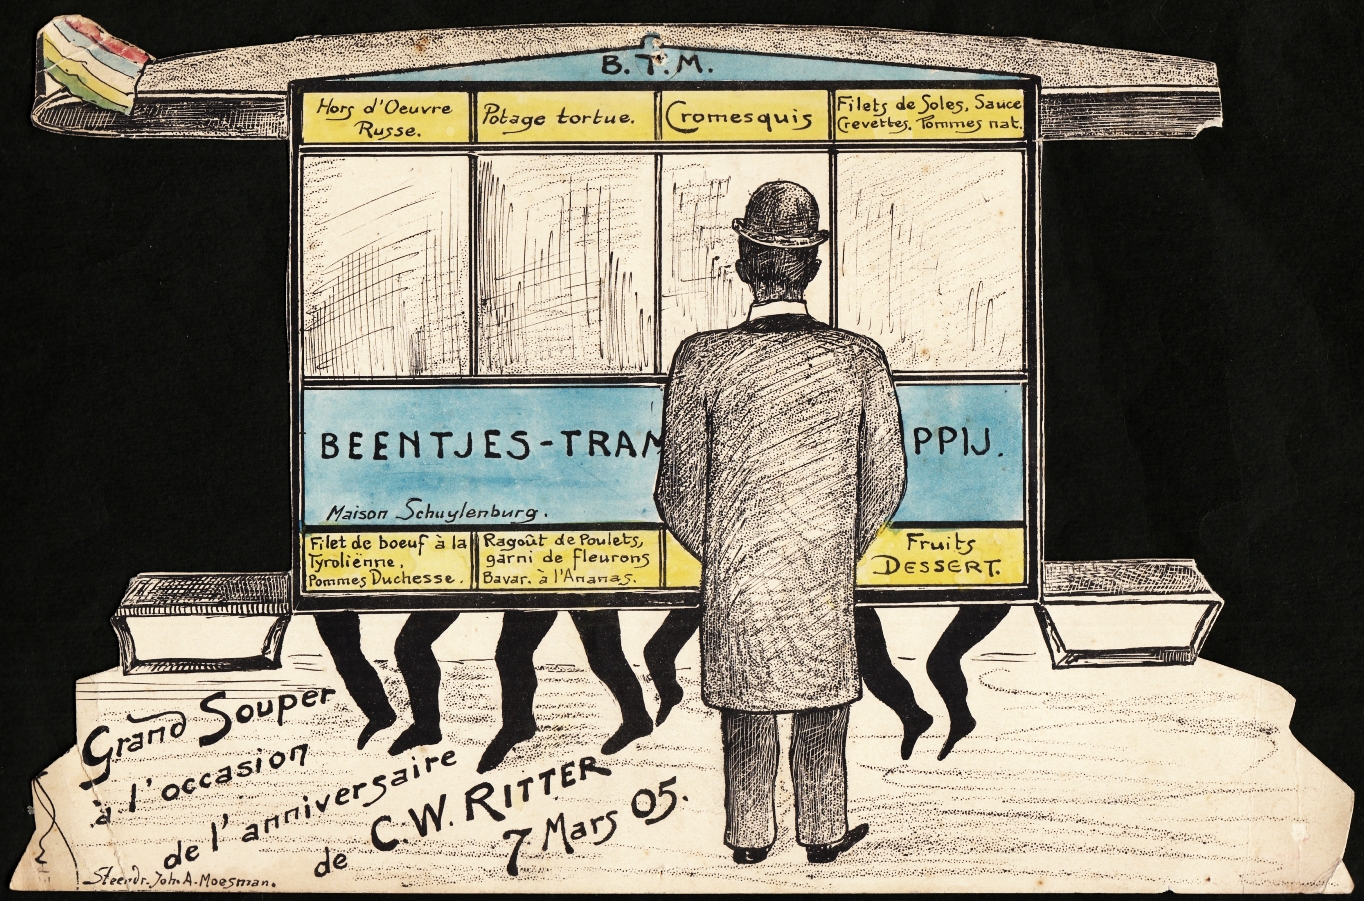 B.T.M.
Hors d'Oeuvre
Russe.
Potage tortue.
Cromesquis
Filets de Soles, Sauce
Crevettes. Pommes nat.
BEENTJES-TRAM
PPIJ.
Maison Schuylenburg.
Filet de boeuf à la
Tyroliënne.
Pommes Duchesse.
Ragoût de Poulets,
garni de fleurons
Bavar. à l'Ananas.
Fruits
DESSERT.
Grand Souper
à l'occasion
de l'anniversaire
de C.W. RITTER
7 Mars 05.
Steendr. Joh. A. Moesman.